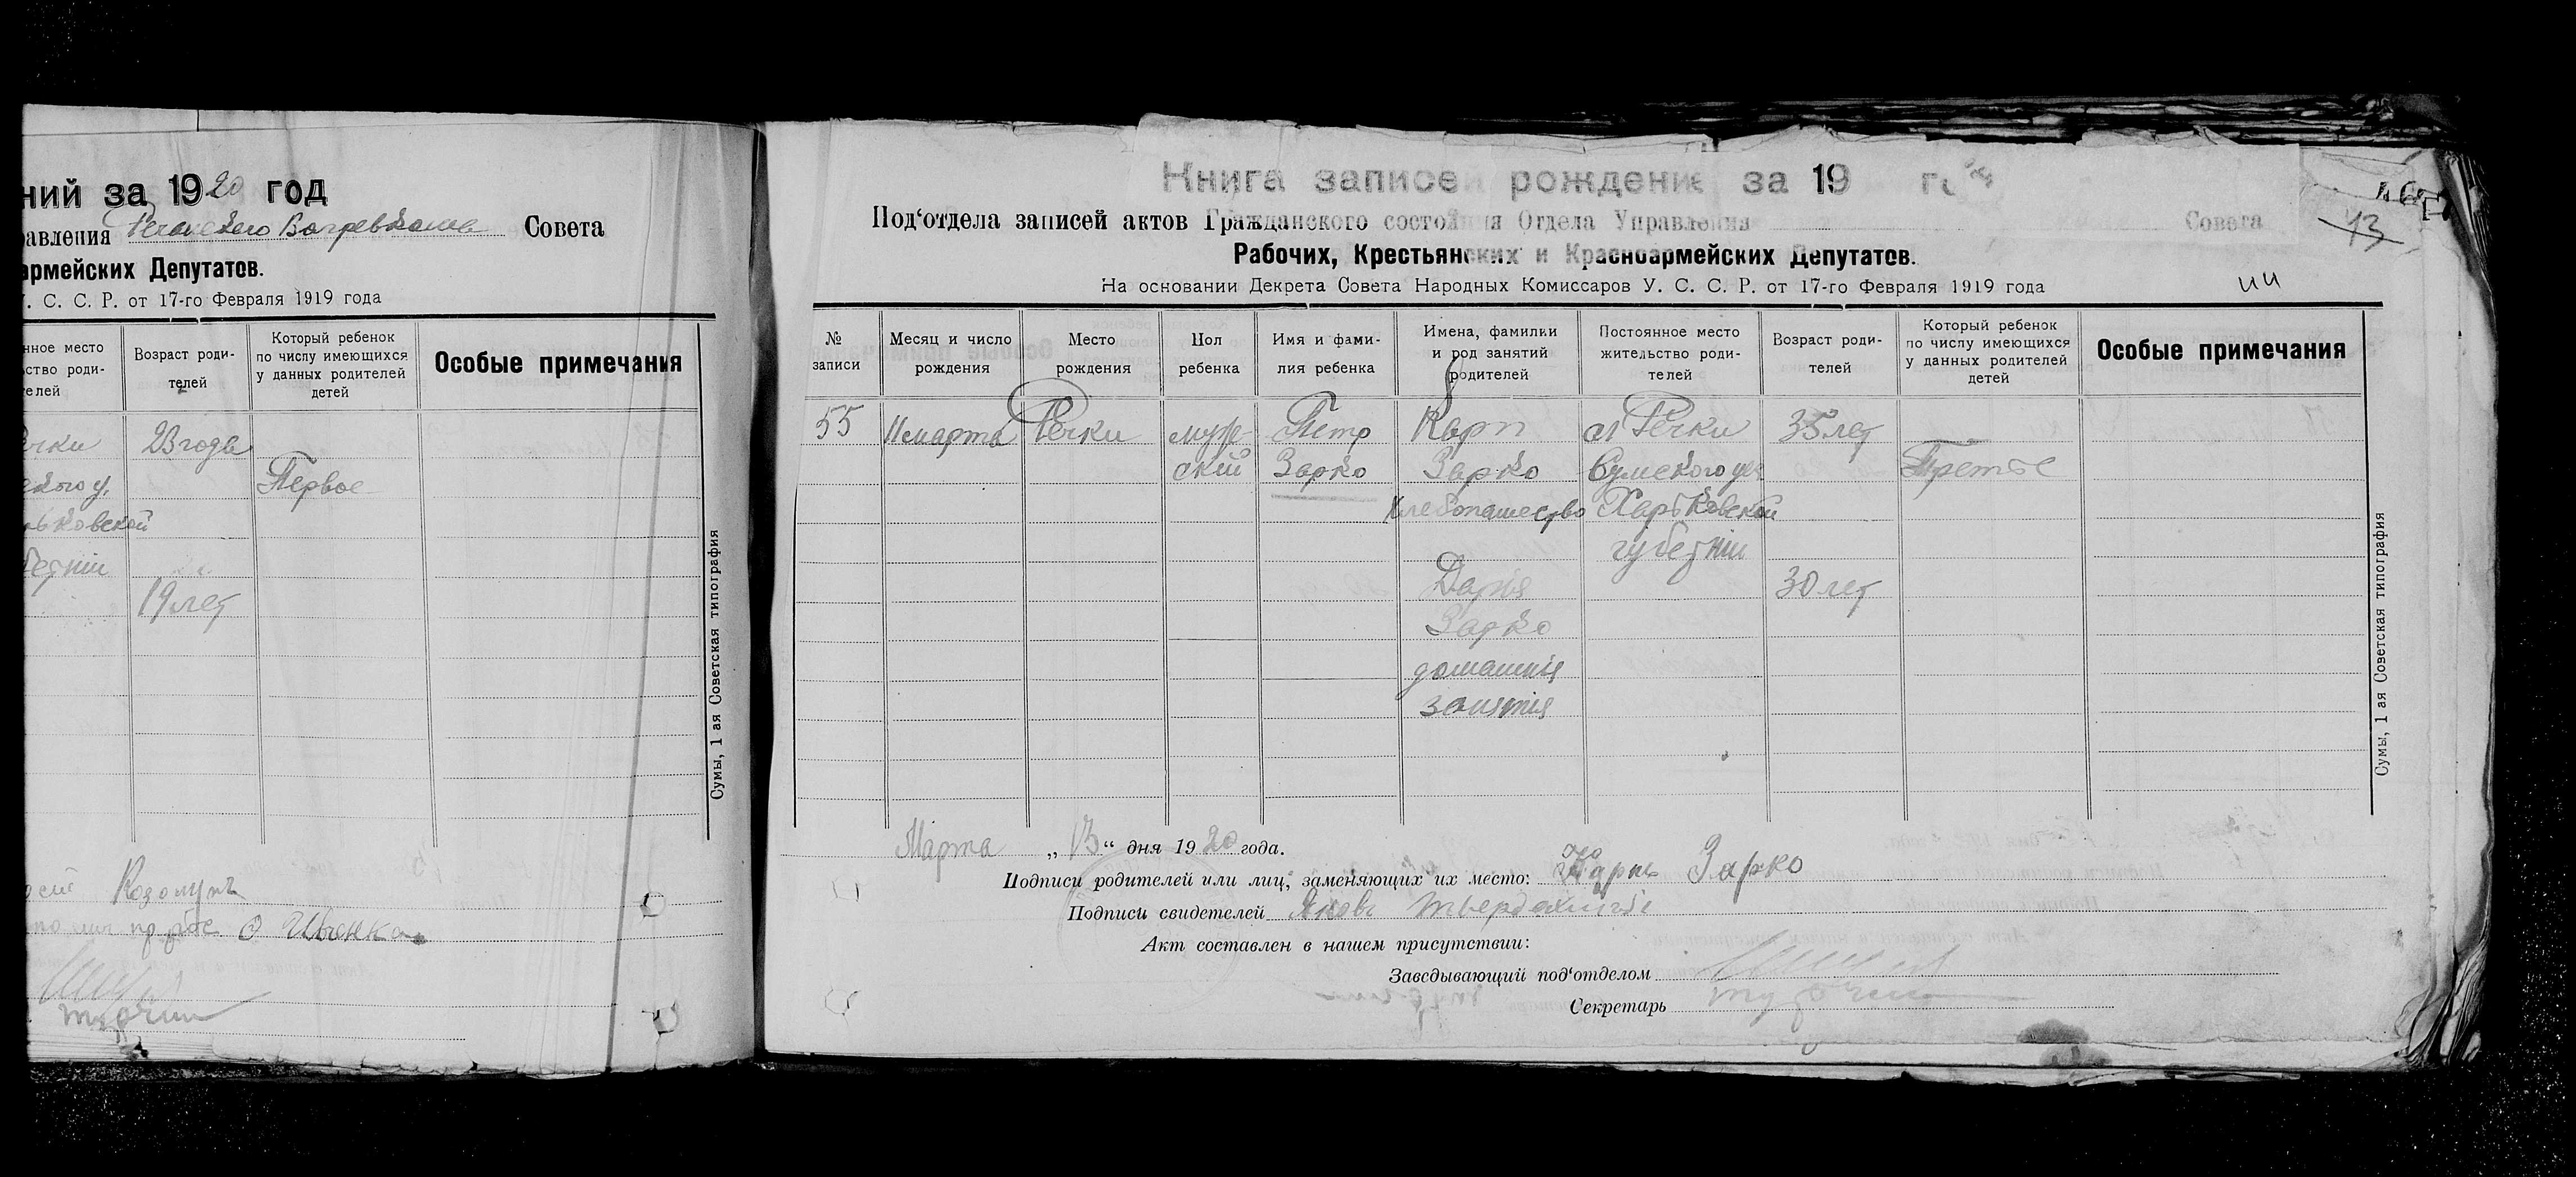 ний за 1920 год
авления Речанского Волревкома Совета
армейских Депутатов.
У. С. С. Р. от 17-го Февраля 1919 года
нное место
ство роди-
телей
Возраст роди-
телей
Который ребенок
по числу имеющихся
у данных родителей
детей
Особые примечания
ечки 23 года
ского у. Первое
ьковской
бернии
19 лет
Сумы, 1 ая Советская типография
Козолуп
46
43
Книга записей рождений за 19 го
Под‘отдела записей актов Гражданского состояния Отдела Управления Совета
Рабочих, Крестьянских и Красноармейских Депутатов.
На основании Декрета Совета Народных Комиссаров У. С. С. Р. от 17-го Февраля 1919 года
№
записи
Месяц и число
рождения
Место
рождения
Пол
ребенка
Имя и фами-
лия ребенка
Имена, фамилии
и род занятий
родителей
Постоянное место
жительство роди-
телей
Возраст роди-
телей
Который ребенок
по числу имеющихся
у данных родителей
детей
Особые примечания
55 11 марта Речки муж- Петр Карп сл Речки 35 лет
ский Зарко Зарко Сумского уез Третье
Хлебопашество Харьковской
губернии
Дария 30 лет
Зарко
домашния
занятия
Сумы, 1 ая Советская типография
Марта „13“ дня 1920 года.
Подписи родителей или лиц, заменяющих их место: Карпъ Зарко
Подписи свидетелей Яковъ Твердохлебъ
Акт составлен в нашем присутствии:
Заведывающий под‘отделом
Секретарь